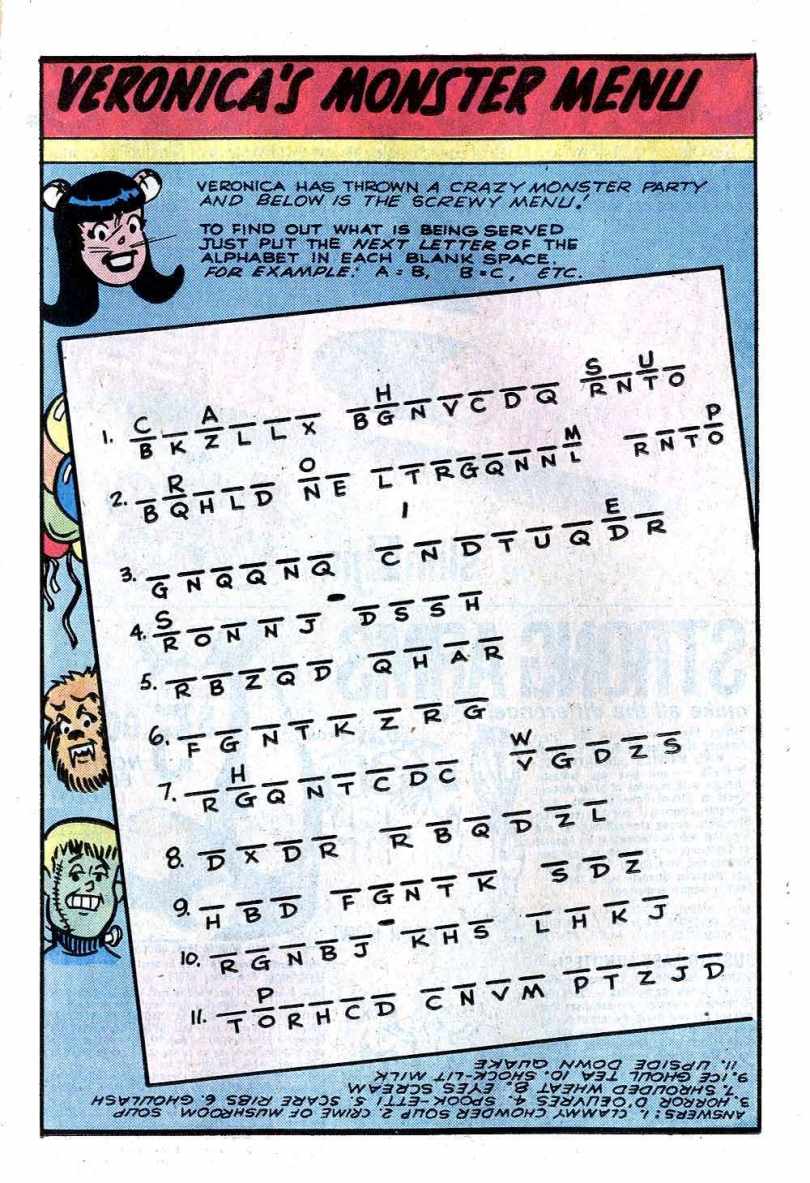 VERONICA'S MONSTER MENU
VERONICA HAS THROWN A CRAZY MONSTER PARTY
AND BELOW IS THE SCREWY MENU!
TO FIND OUT WHAT IS BEING SERVED
JUST PUT THE NEXT LETTER OF THE
ALPHABET IN EACH BLANK SPACE.
FOR EXAMPLE: A = B, B = C, ETC.
C A H S U
1. B K Z L L X B G N V C D Q R N T O
R O M P
2. B Q H L D N E L T R G Q N N L R N T O
' E
3. G N Q Q N Q C N D T U Q D R
S
4. R O N N J - D S S H
5. R B Z Q D Q H A R
6. F G N T K Z R G
H W
7. R G Q N T C D C V G D Z S
8. D X D R R B Q D Z L
9. H B D F G N T K S D Z
10. R G N B J - K H S L H K J
P
11. T O R H C D C N V M P T Z J D
ANSWERS: 1. CLAMMY CHOWDER SOUP 2. CRIME OF MUSHROOM SOUP
3. HORROR D'OEUVRES 4. SPOOK-ETTI 5. SCARE RIBS 6. GHOULASH
7. SHROUDED WHEAT 8. EYES SCREAM
9. ICE GHOUL TEA 10. SHOCK-LIT MILK
11. UPSIDE DOWN QUAKE